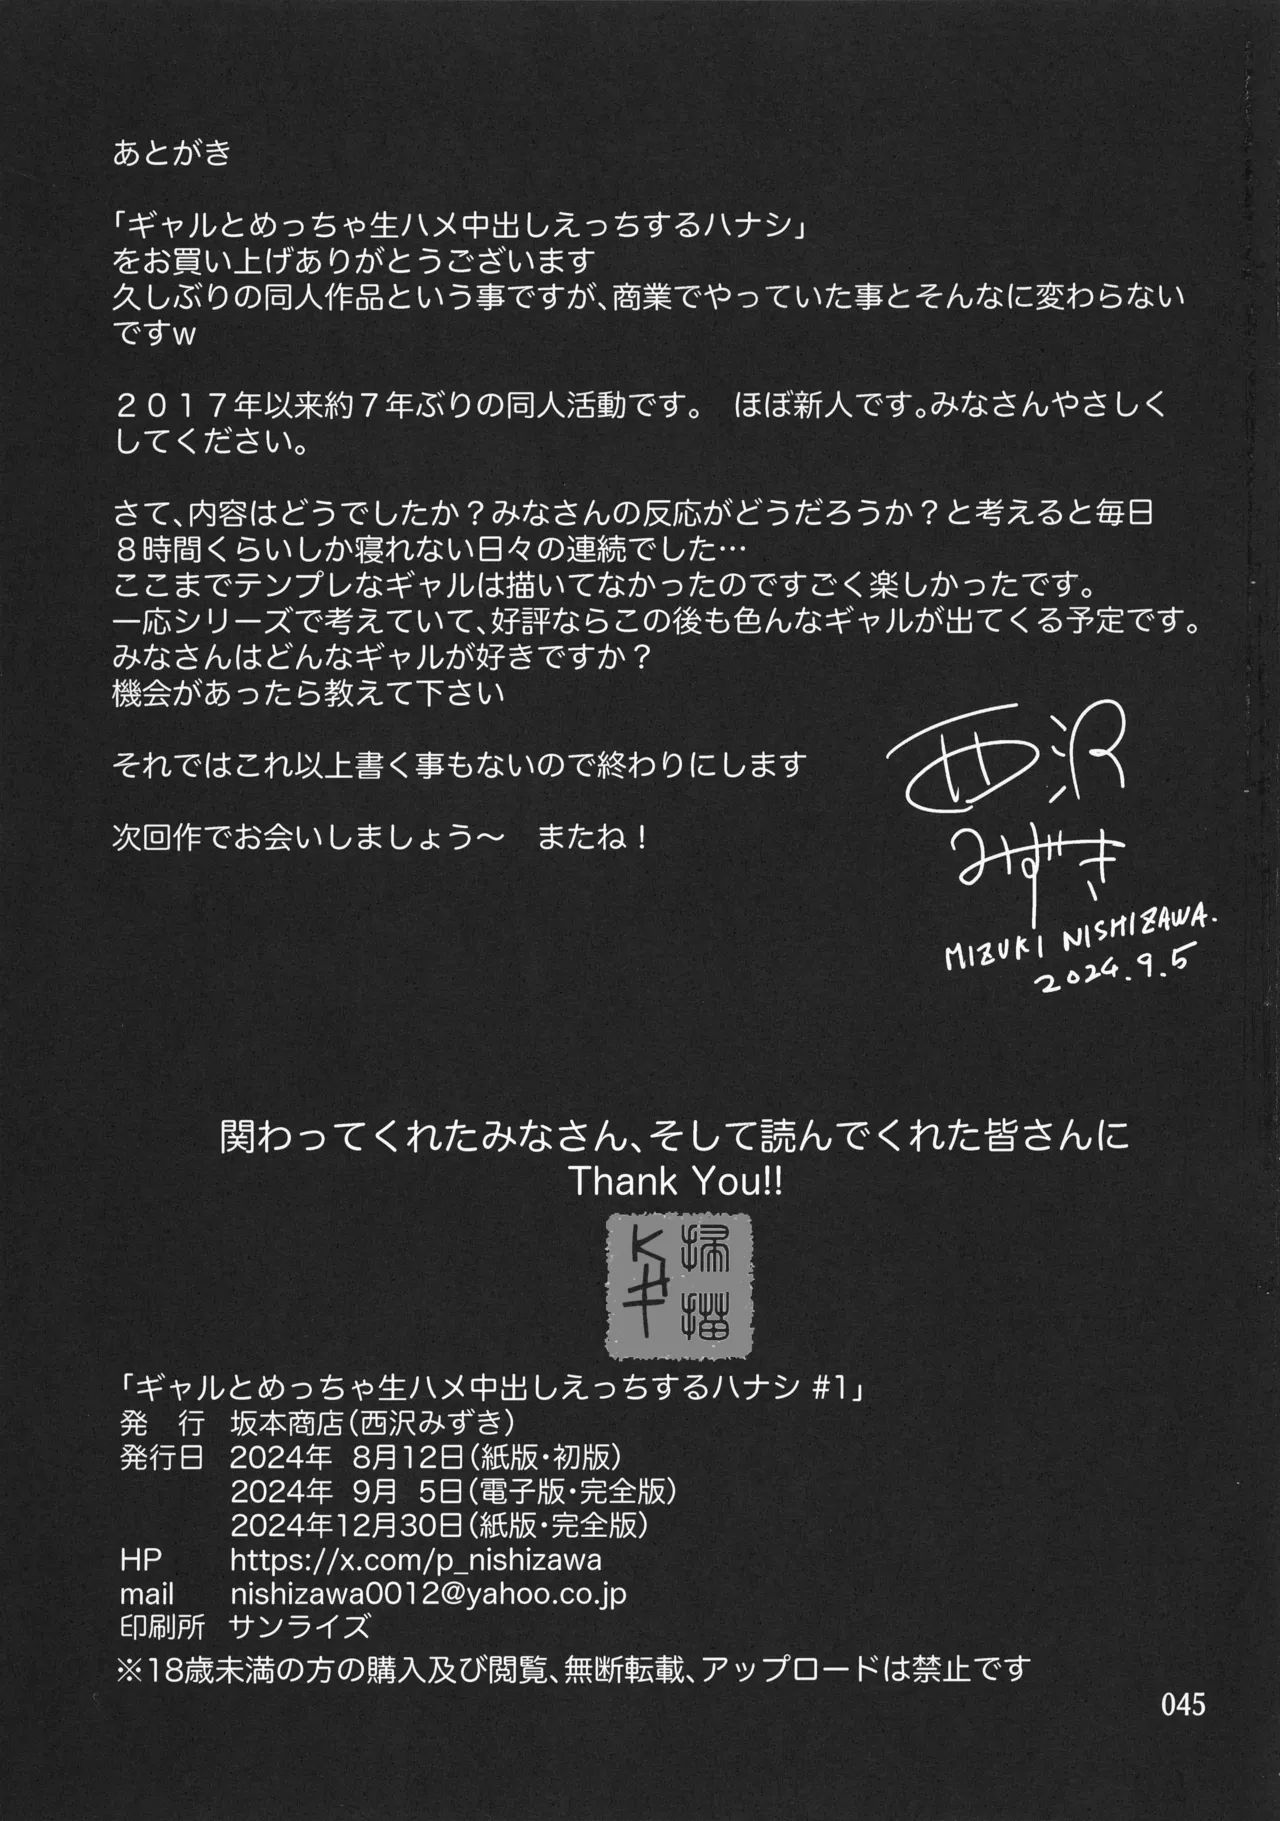 あとがき
「ギャルとめっちゃ生ハメ中出しえっちするハナシ」
をお買い上げありがとうございます
久しぶりの同人作品という事ですが、商業でやっていた事とそんなに変わらない
ですw
２０１７年以来約７年ぶりの同人活動です。　ほぼ新人です。みなさんやさしく
してください。
さて、内容はどうでしたか？みなさんの反応がどうだろうか？と考えると毎日
８時間くらいしか寝れない日々の連続でした…
ここまでテンプレなギャルは描いてなかったのですごく楽しかったです。
一応シリーズで考えていて、好評ならこの後も色んなギャルが出てくる予定です。
みなさんはどんなギャルが好きですか？
機会があったら教えて下さい
それではこれ以上書く事もないので終わりにします
次回作でお会いしましょう～　またね！
西沢
みずき
MIZUKI NISHIZAWA.
2024.9.5
関わってくれたみなさん、そして読んでくれた皆さんに
Thank You!!
掃描
Kキ
「ギャルとめっちゃ生ハメ中出しえっちするハナシ #1」
発　行　坂本商店（西沢みずき）
発行日　2024年 8月12日（紙版・初版）
2024年 9月 5日（電子版・完全版）
2024年12月30日（紙版・完全版）
HP　https://x.com/p_nishizawa
mail　nishizawa0012@yahoo.co.jp
印刷所　サンライズ
※18歳未満の方の購入及び閲覧、無断転載、アップロードは禁止です
045